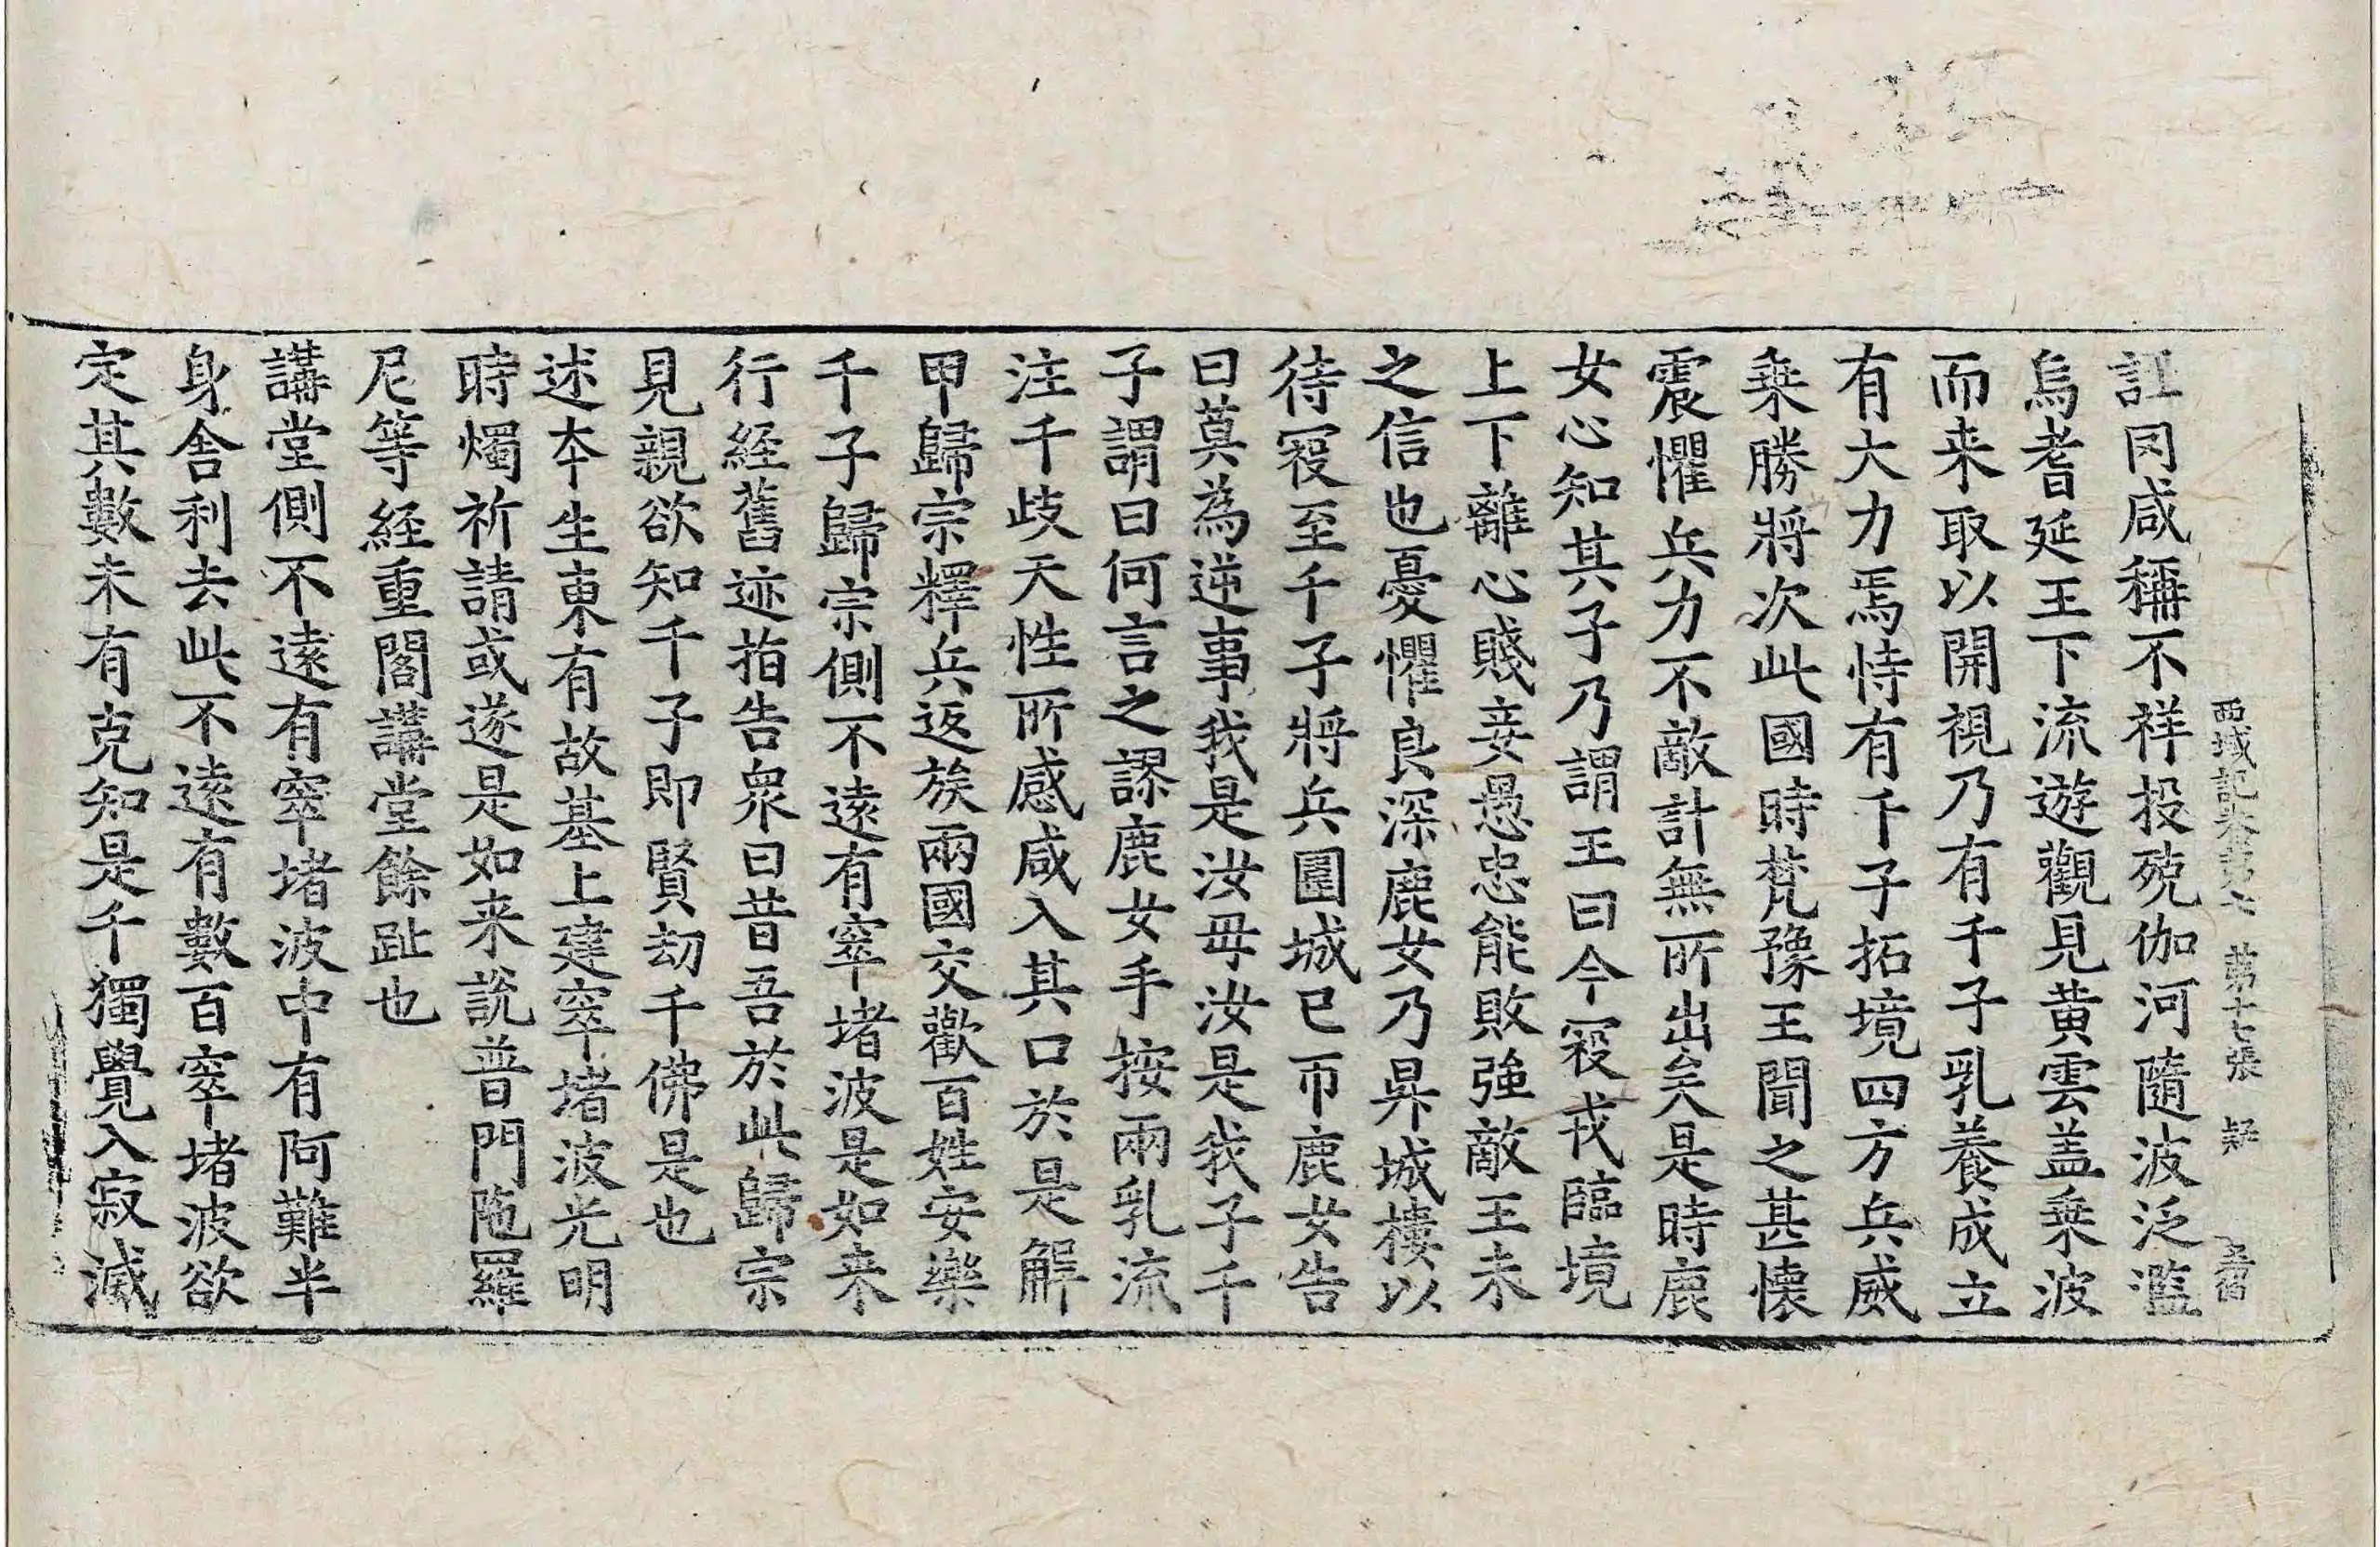 西域記卷第七 第十七張 疑
訌罔咸稱不祥投殑伽河隨波泛濫
烏耆延王下流遊觀見黃雲盖乗波
而来取以開視乃有千子乳養成立
有大力焉恃有千子拓境四方兵威
乗勝將次此國時梵豫王聞之甚懷
震懼兵力不敵計無所出矣是時鹿
女心知其子乃謂王曰今寇戎臨境
上下離心賤妾愚忠能敗強敵王未
之信也憂懼良深鹿女乃昇城樓以
待寇至千子將兵圍城已帀鹿女告
曰莫為逆事我是汝母汝是我子千
子謂曰何言之謬鹿女手按兩乳流
注千歧天性所感咸入其口於是解
甲歸宗釋兵返族兩國交歡百姓安樂
千子歸宗側不遠有窣堵波是如来
行経舊迹指告衆曰昔吾於此歸宗
見親欲知千子即賢劫千佛是也
述夲生東有故基上建窣堵波光明
時燭祈請或遂是如来說普門陁羅
尼等経重閣講堂餘趾也
講堂側不遠有窣堵波中有阿難半
身舎利去此不遠有數百窣堵波欲
定其數未有克知是千獨覺入寂滅